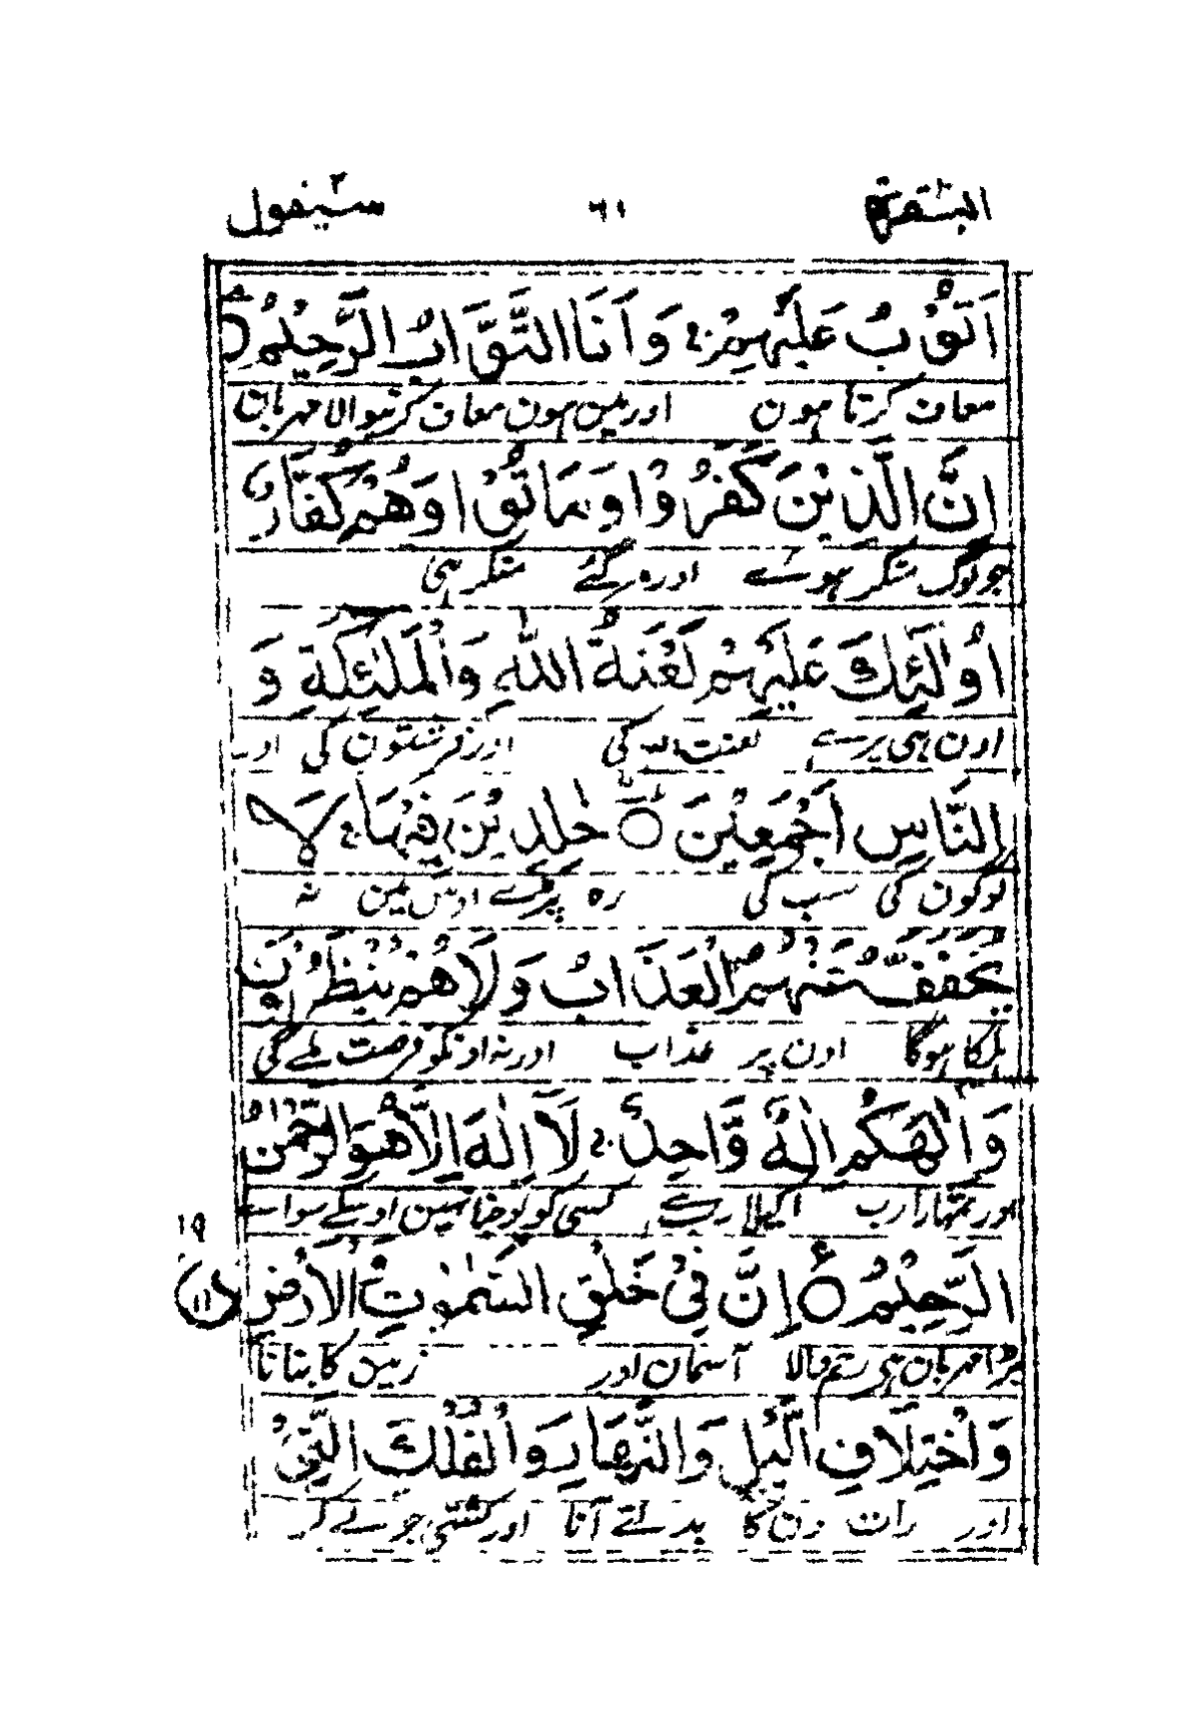 البقرة ٢ ٦١ سيقول ٢
اَتُوْبُ عَلَيْهِمْ ۚ وَاَنَا التَّوَّابُ الرَّحِيْمُ
معاف کرتا ہون اور مین ہون معاف کرنیوالا مہربان
اِنَّ الَّذِيْنَ كَفَرُوْا وَمَاتُوْا وَهُمْ كُفَّارٌ
جو لوگ منکر ہوئے اور مر گئے منکر ہی
اُولٰٓئِكَ عَلَيْهِمْ لَعْنَةُ اللّٰهِ وَالْمَلٰٓئِكَةِ وَ
اون ہی پر ہے لعنت اللہ کی اور فرشتون کی اور
النَّاسِ اَجْمَعِيْنَ ○ خٰلِدِيْنَ فِيْهَا ۚ لَا
لوگون کی سب کی رہ پڑے اوس مین نہ
يُخَفَّفُ عَنْهُمُ الْعَذَابُ وَلَا هُمْ يُنْظَرُوْنَ
ہلکا ہوگا اون پر عذاب اور نہ اونکو فرصت ملے گی
وَاِلٰهُكُمْ اِلٰهٌ وَّاحِدٌ ۚ لَآ اِلٰهَ اِلَّا هُوَ الرَّحْمٰنُ
اور تمہارا رب اکیلا رب ہے کسی کو پوجنا نہین اوسکے سوا ہے
١٩
الرَّحِيْمُ ○ اِنَّ فِيْ خَلْقِ السَّمٰوٰتِ وَالْاَرْضِ
١١
بڑا مہربان ہی رحم والا آسمان اور زمین کا بنانا
وَاخْتِلَافِ الَّيْلِ وَالنَّهَارِ وَالْفُلْكِ الَّتِيْ
اور رات دن کا بدلتے آنا اور کشتی جو لے کر